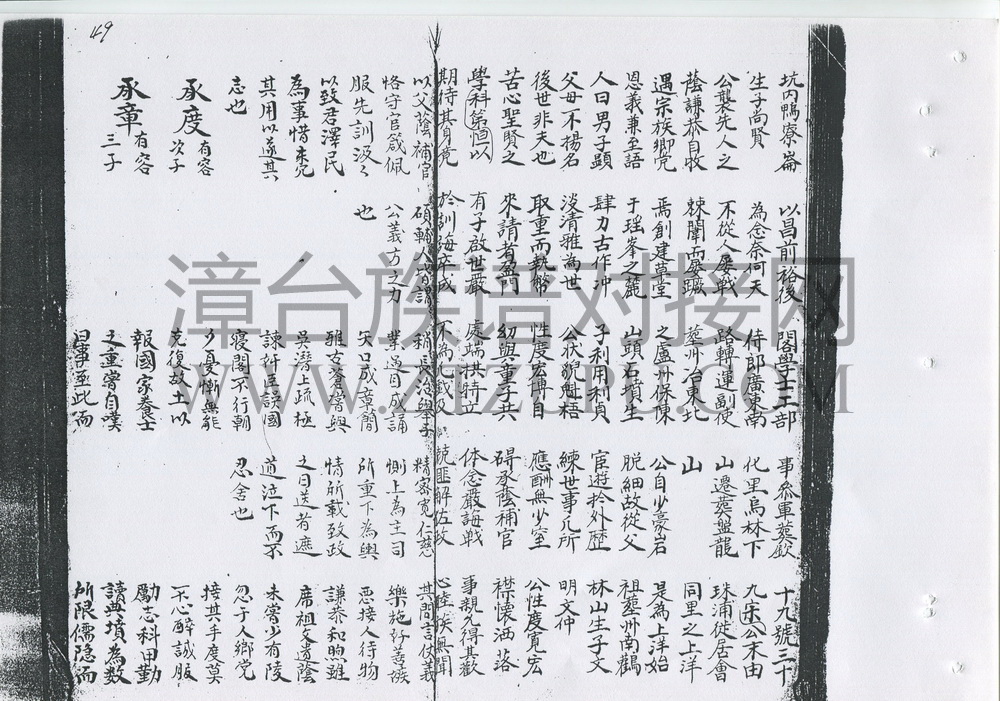 49
坑內鴨寮崙
生子尚賢
公襲先人之
蔭謙恭自牧
遇宗族鄉党
恩義兼至語
人曰男子顕
父母不揚名
後世非夫也
苦心聖賢之
學科第恒以
期待其身竟
以父蔭補官
恪守官箴佩
服先訓汲々
以致君澤民
為事惜未究
其用以遂其
志也
承度 有容次子
承章 有容三子
以昌前裕後
為念奈何天
不從人屡戦
棘闈而屡蹶
焉創建草堂
于瑶峯之麓
肆力古作冲
淡清雅為世
取重而執幣
來請者盈門
有子啟世嚴
於訓誨卒成
碩輔人皆謂
公義方之力
也
閣學士工部
侍郎廣東南
路轉運副使
墓州治東北
之盧州保陳
山頭石墳生
子利用利貞
公状貌魁梧
性度宏博自
幼與童子共
處端拱特立
不為戯及
稍長治舉子
業過目成誦
矢口成章簡
雅古蒼嘗與
吳潛上疏極
諫奸臣誤國
寢閣不行朝
夕憂慚無能
克復故土以
報國家養士
之重嘗自僕
曰事至此而
事參軍墓欽
化里馬林下
山邊葬盤龍
山
公自少豪岩
脱細故從父
宦遊於外歷
練世事凡所
應酬無少窒
碍承蔭補官
体念嚴誨戦
兢匪解佐政
精密寬仁慈
惻上為主司
所重下為輿
情所載致政
之日送者遮
道泣下而不
忍舍也
十九號三十
九公宋由
珠浦徙居會
同里之上洋
是為上洋始
祖塟州南鶴
林山生子文
明文仲
公性度寬宏
襟懷洒落
事親允得其歡
心陸族無聞
其間言仗義
樂施好善嫉
惡接人待物
謙恭和煦雖
席祖父遺蔭
未嘗少有陵
忽于人鄉党
接其手度莫
不心醉誠服
勵志科甲勤
讀典墳為数
所限儒隐而
漳台族谱对接网
WWW.ZTZUPU.COM